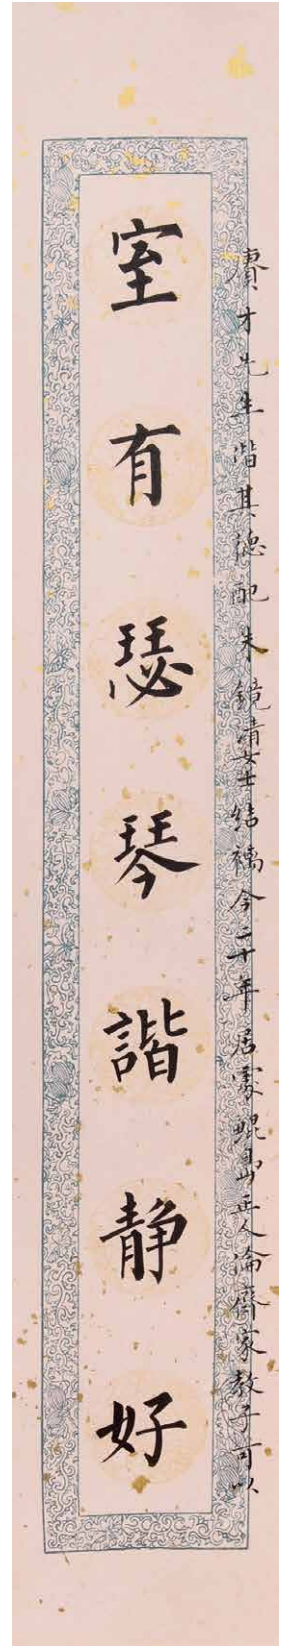 賡才先生偕其德配朱鏡清女士結褵今二十年居家正人倫齊家教子可以
室有瑟琴諧静好